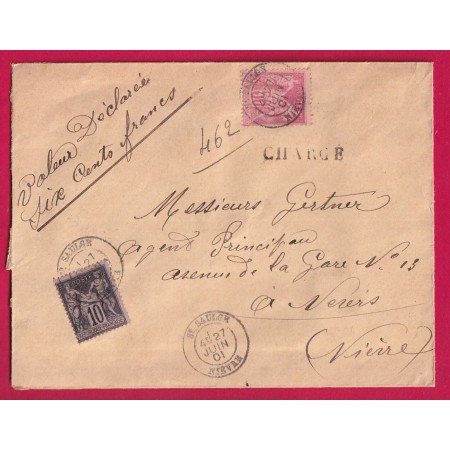 Valeur Déclarée
six Cents francs
462
CHARGÉ
Messieurs Gertner
Agent Principal
avenue de la Gare No 13
à Nevers
(Nièvre)
ST SAULGE
27
10
ST SAULGE
27
JUIN
01
NIEVRE